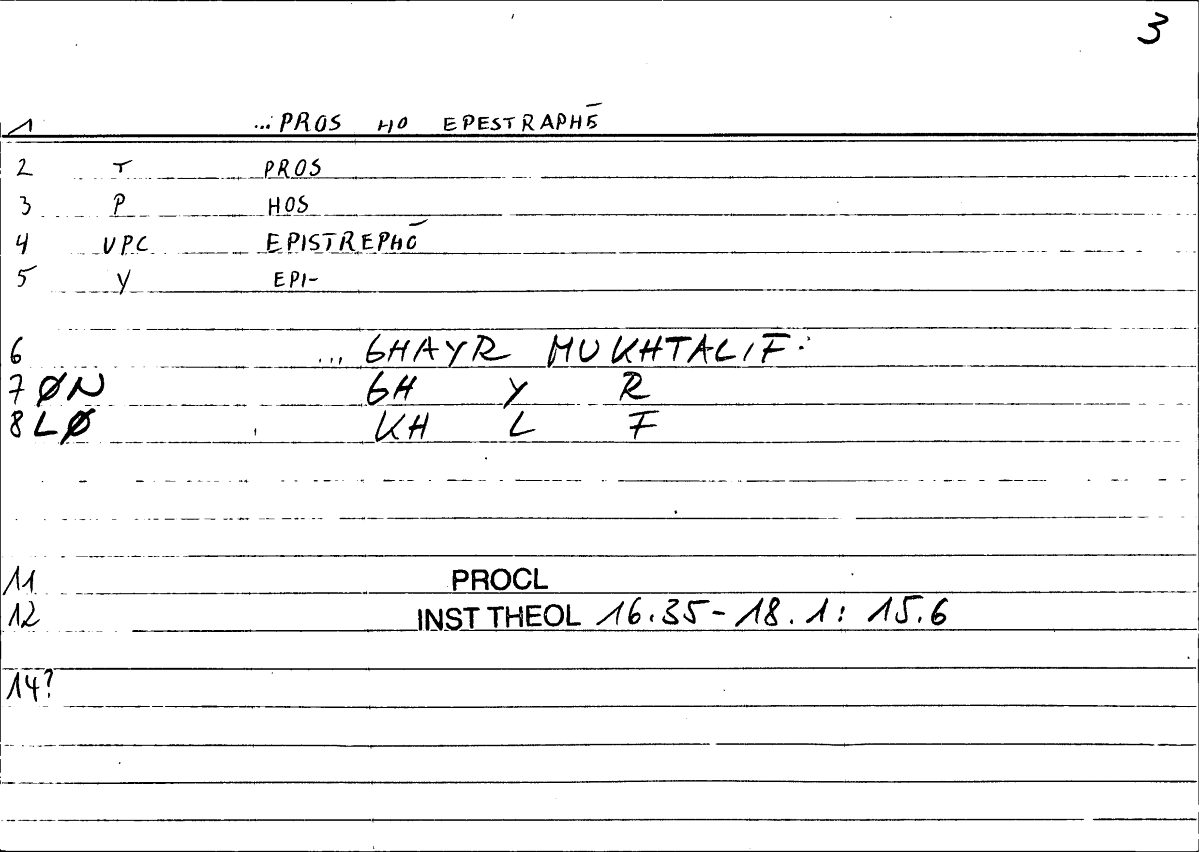 3
1 ... PROS HO EPESTRAPHĒ
2 T PROS
3 P HOS
4 VPC EPISTREPHŌ
5 Y EPI-
6 ... GHAYR MUKHTALIF:
7 ØN GH Y R
8 LØ KH L F
11 PROCL
12 INST THEOL 16.35-18.1: 15.6
14?